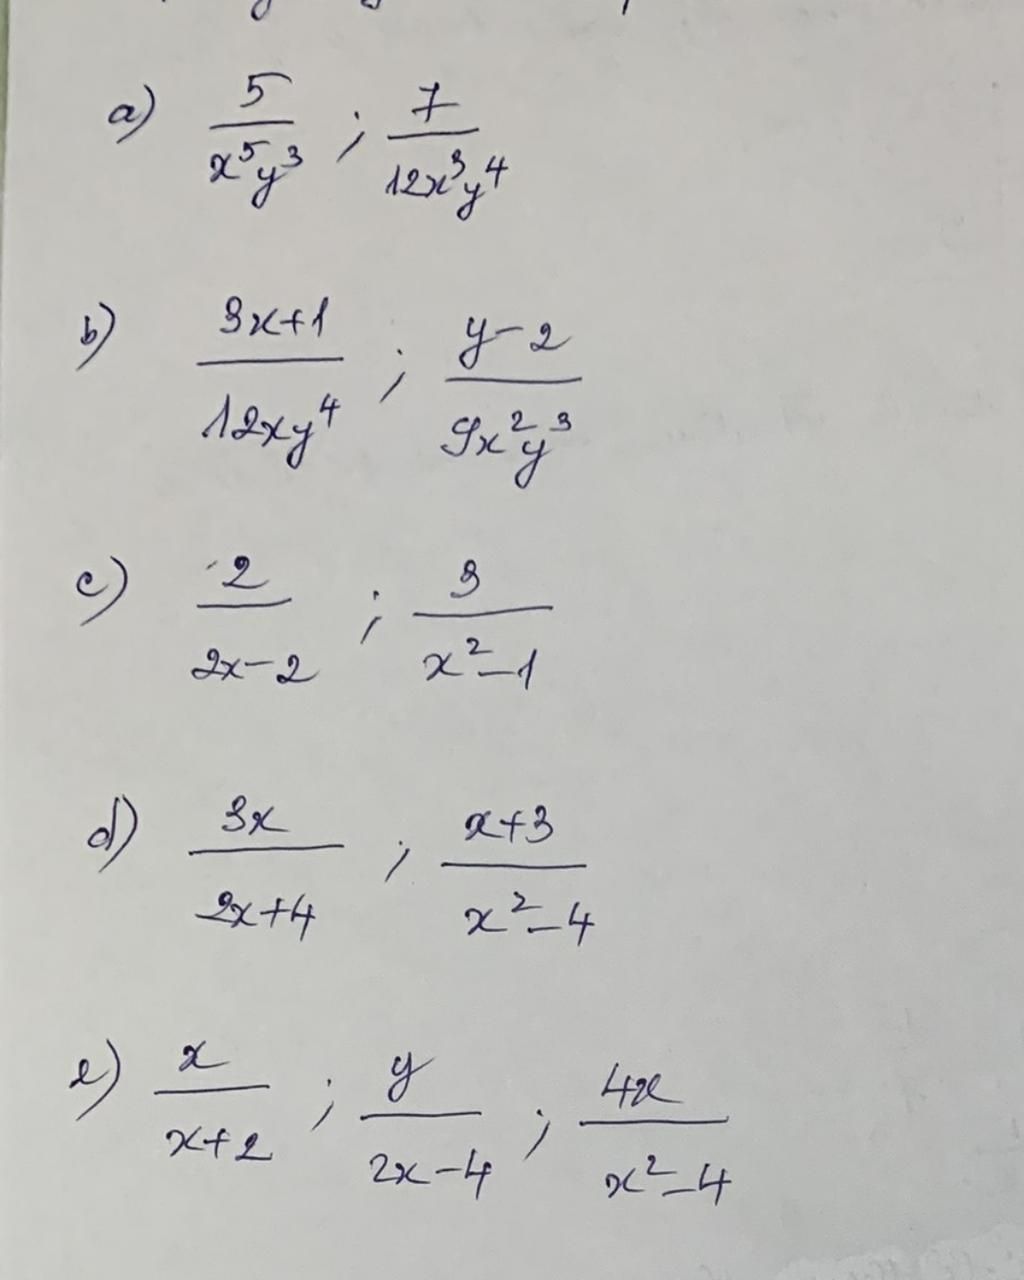 a) 5/x⁵y³ ; 7/12x³y⁴
b) 3x+1/12xy⁴ ; y-2/9x²y³
c) 2/2x-2 ; 3/x²-1
d) 3x/2x+4 ; x+3/x²-4
e) x/x+2 ; y/2x-4 ; 4x/x²-4